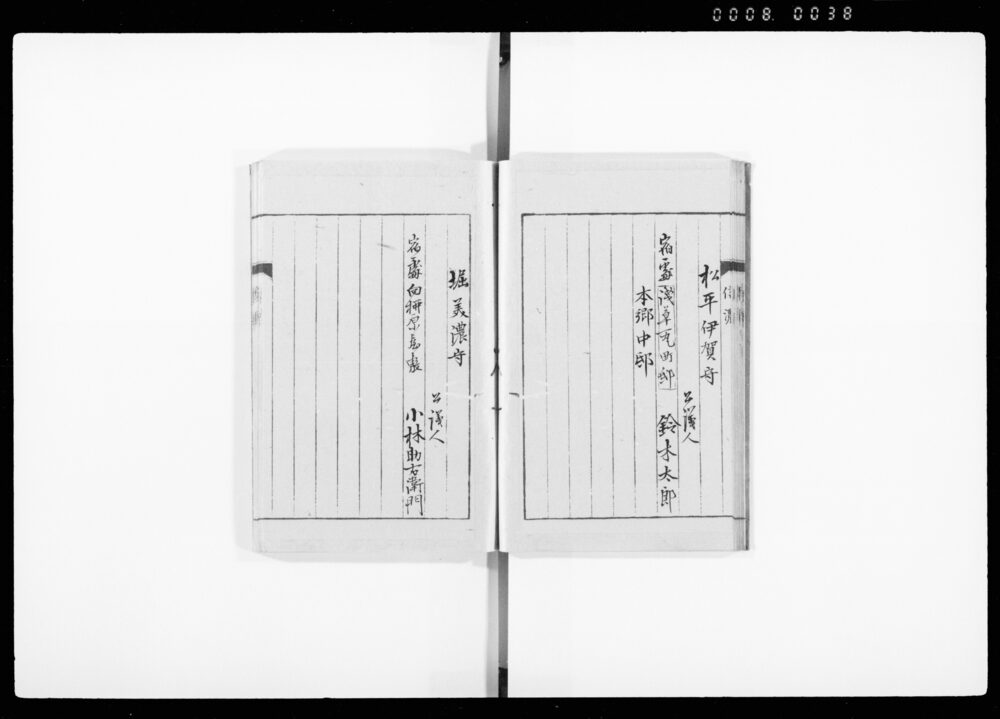 0008. 0038
信濃
松平伊賀守
公議人
宿處浅草瓦町邸 鈴木太郎
本郷中邸
堀美濃守
公議人
宿處向柳原 小林助右衛門